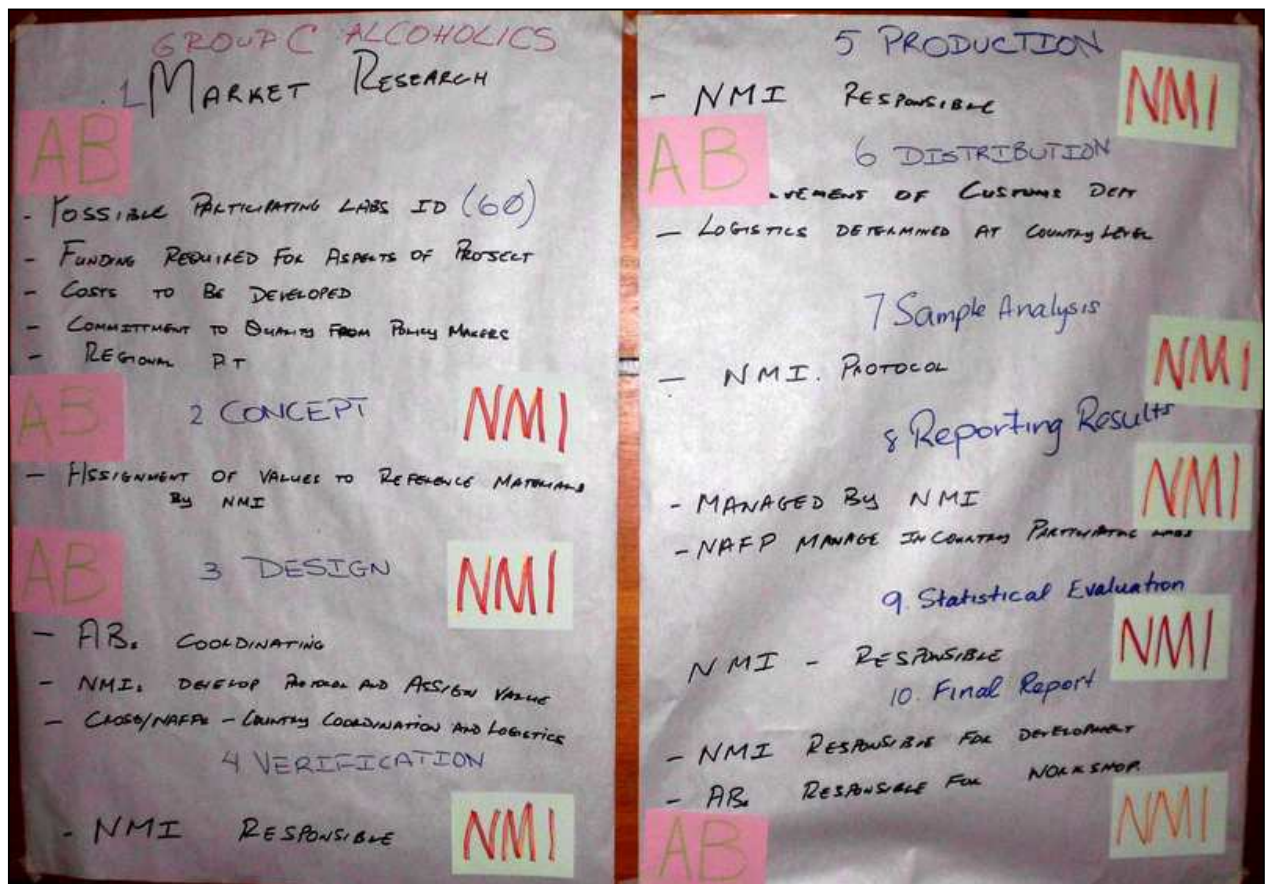 GROUP C ALCOHOLICS
1 MARKET RESEARCH
AB
- POSSIBLE PARTICIPATING LABS ID (60)
- FUNDING REQUIRED FOR ASPECTS OF PROJECT
- COSTS TO BE DEVELOPED
- COMMITTMENT TO QUALITY FROM POLICY MAKERS
- REGIONAL P.T
AB
2 CONCEPT
NMI
- ASSIGNMENT OF VALUES TO REFERENCE MATERIALS
BY NMI
AB
3 DESIGN
NMI
- AB. COORDINATING
- NMI. DEVELOP PROTOCOL AND ASSIGN VALUE
- CROSQ/NAFPs - COUNTRY COORDINATION AND LOGISTICS
4 VERIFICATION
- NMI RESPONSIBLE
NMI
5 PRODUCTION
- NMI RESPONSIBLE
NMI
AB
6 DISTRIBUTION
VEMENT OF CUSTOMS DEPT
- LOGISTICS DETERMINED AT COUNTRY LEVEL
7 Sample Analysis
- NMI. PROTOCOL
NMI
8 Reporting Results
- MANAGED BY NMI
NMI
- NAFP MANAGE IN COUNTRY PARTICIPATING LABS
9. Statistical Evaluation
NMI - RESPONSIBLE
NMI
10. Final Report
- NMI RESPONSIBLE FOR DEVELOPMENT
- AB. RESPONSIBLE FOR WORKSHOP.
NMI
AB